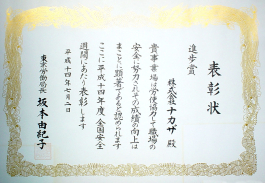 表彰状
進歩賞
株式会社ナカザ殿
貴事業場は労使協力して職場の
安全に努力されその成績の向上は
まことに顕著であると認められます
ここに平成十四年度全国安全
週間にあたり表彰します
平成十四年七月二日
東京労働局長 坂本由紀子